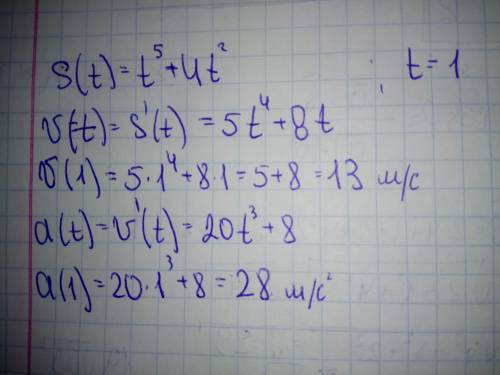 S(t) = t⁵ + 4t² ; t = 1
v(t) = S'(t) = 5t⁴ + 8t
v(1) = 5·1⁴ + 8·1 = 5 + 8 = 13 м/с
a(t) = v'(t) = 20t³ + 8
a(1) = 20·1³ + 8 = 28 м/с²